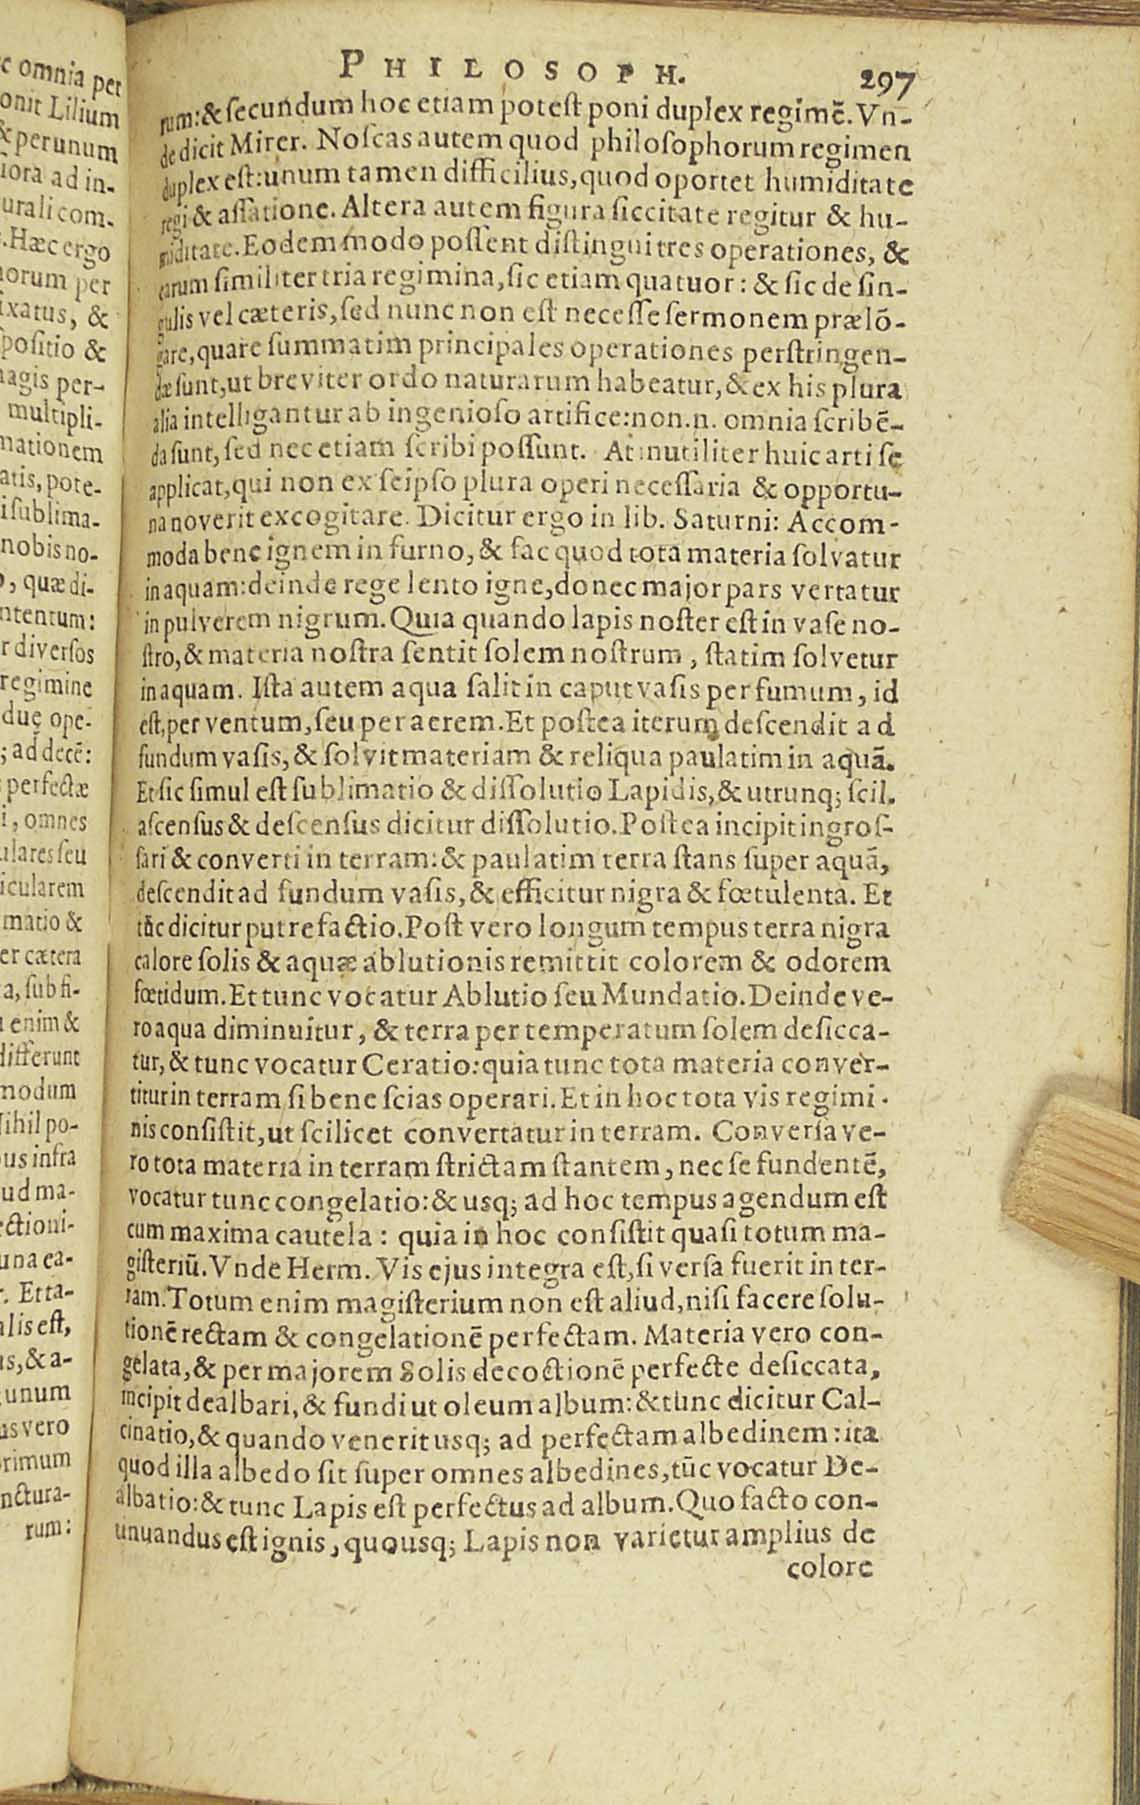 c omnia per
onit Lilium
& perunum
iora ad in-
urali com-
. Hæc ergo
norum per
ixatus, &
positio &
nagis per-
multipli-
mationem
atis, pote-
i sublima-
nobis no-
, quæ di-
ntentum:
r diversos
regimine
duę ope-
; ad decē:
perfectæ
i, omnes
ulares seu
icularem
matio &
er cætera
a, sub fi-
enim &
differunt
modum
Nihil po-
us infra
ud ma-
ectioni-
una ea-
. Et ta-
alis est,
us, & a-
unum
us vero
rimum
nctura-
rum:
PHILOSOPH. 297
rum: & secundum hoc etiam potest poni duplex regimē. Vn-
de dicit Mirer. Noscas autem quod philosophorum regimen
duplex est: unum tamen difficilius, quod oportet humiditate
regi & assatione. Altera autem figura siccitate regitur & hu-
miditate. Eodem modo possent distingui tres operationes, &
earum similiter tria regimina, sic etiam quatuor: & sic de sin-
gulis vel cæteris, sed nunc non est necesse sermonem prælō-
gare, quare summatim principales operationes perstringen-
dæ sunt, ut breviter ordo naturarum habeatur, & ex his plura
alia intelligantur ab ingenioso artifice: non.n. omnia scribē-
da sunt, sed nec etiam scribi possunt. At inutiliter huic arti se
applicat, qui non ex seipso plura operi necessaria & opportu-
na noverit excogitare. Dicitur ergo in lib. Saturni: Accom-
moda bene ignem in furno, & fac quod tota materia solvatur
in aquam: deinde rege lento igne, donec major pars vertatur
in pulverem nigrum. Quia quando lapis noster est in vase no-
stro, & materia nostra sentit solem nostrum, statim solvetur
in aquam. Ista autem aqua salit in caput vasis per fumum, id
est, per ventum, seu per aerem. Et postea iterum descendit ad
fundum vasis, & solvit materiam & reliqua paulatim in aquā.
Et sic simul est sublimatio & dissolutio Lapidis, & utrunq; scil.
ascensus & descensus dicitur dissolutio. Postea incipit ingros-
sari & converti in terram: & paulatim terra stans super aquā,
descendit ad fundum vasis, & efficitur nigra & fœtulenta. Et
tūc dicitur putrefactio. Post vero longum tempus terra nigra
calore solis & aquæ ablutionis remittit colorem & odorem
fœtidum. Et tunc vocatur Ablutio seu Mundatio. Deinde ve-
ro aqua diminuitur, & terra per temperatum solem desicca-
tur, & tunc vocatur Ceratio: quia tunc tota materia conver-
titur in terram si bene scias operari. Et in hoc tota vis regimi-
nis consistit, ut scilicet convertatur in terram. Conversa ve-
ro tota materia in terram strictam stantem, nec se fundentē,
vocatur tunc congelatio: & usq; ad hoc tempus agendum est
cum maxima cautela: quia in hoc consistit quasi totum ma-
gisteriū. Vnde Herm. Vis ejus integra est, si versa fuerit in ter-
ram. Totum enim magisterium non est aliud, nisi facere solu-
tionē rectam & congelationē perfectam. Materia vero con-
gelata, & per majorem Solis decoctionē perfecte desiccata,
incipit dealbari, & fundi ut oleum album: & tunc dicitur Cal-
cinatio, & quando venerit usq; ad perfectam albedinem: ita
quod illa albedo sit super omnes albedines, tūc vocatur De-
albatio: & tunc Lapis est perfectus ad album. Quo facto con-
tinuandus est ignis, quousq; Lapis non varietur amplius de
colore